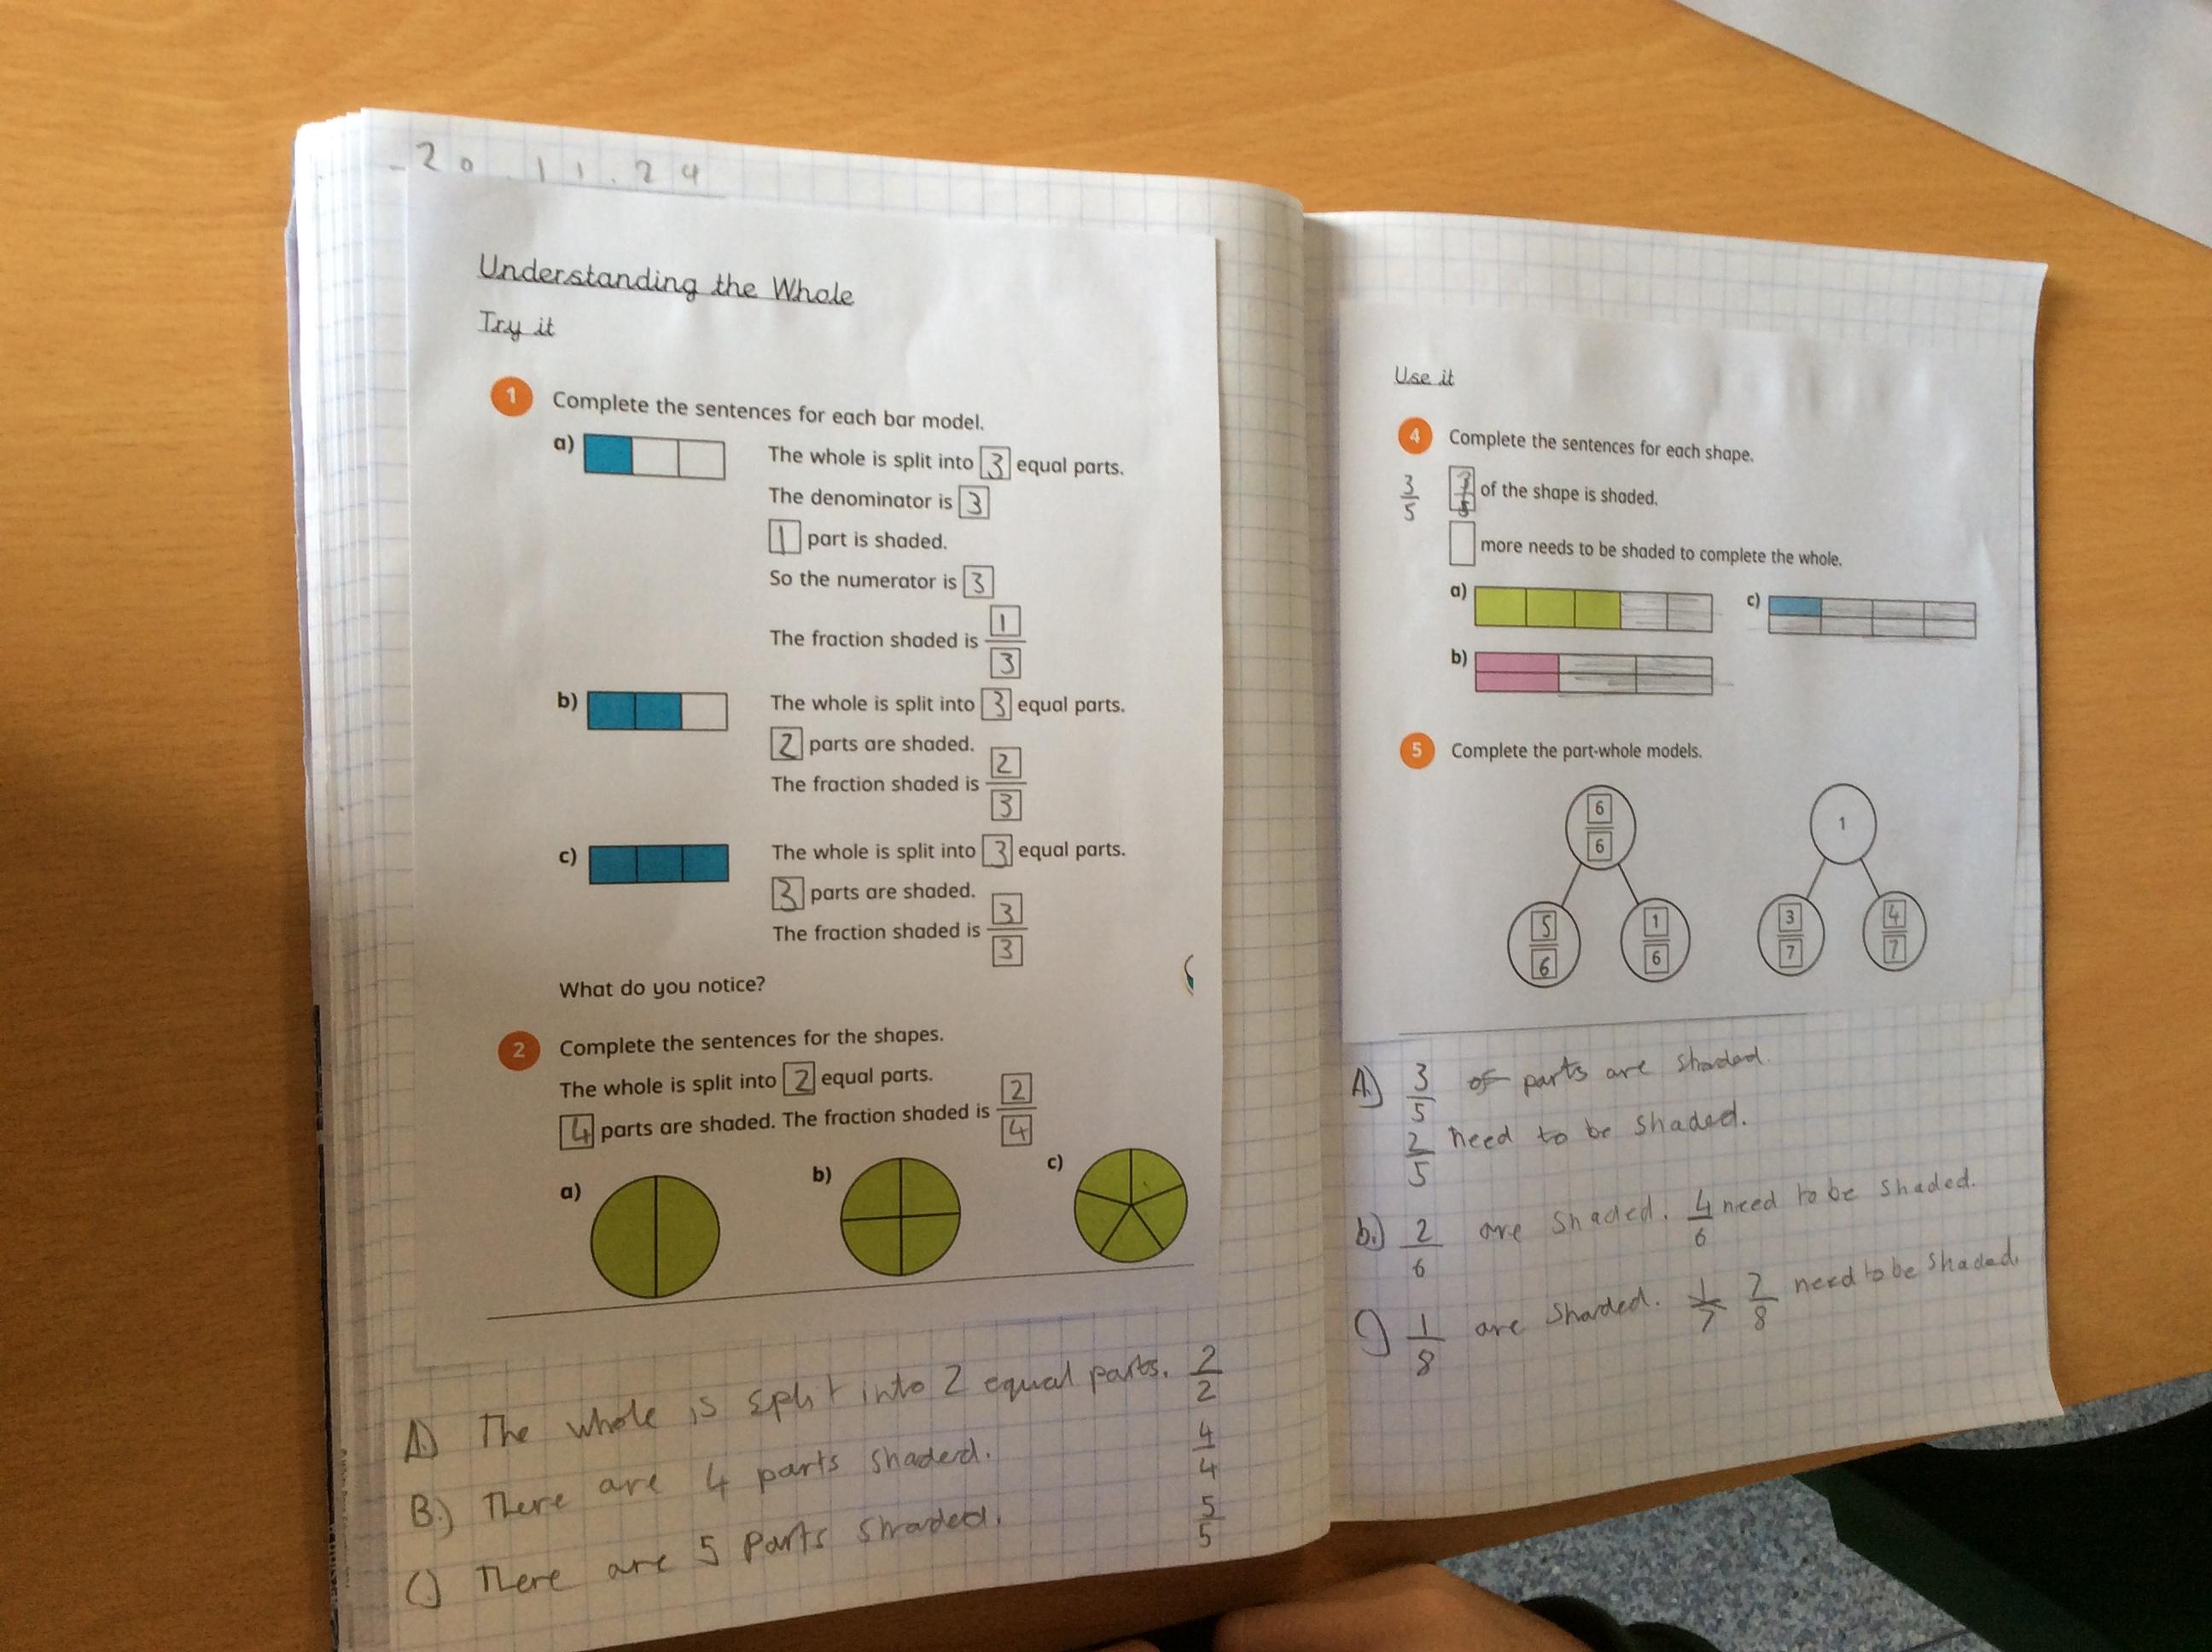 20.11.24
Understanding the Whole
Try it
1 Complete the sentences for each bar model.
a) The whole is split into 3 equal parts.
The denominator is 3
1 part is shaded.
So the numerator is 3
The fraction shaded is 1/3
b) The whole is split into 3 equal parts.
2 parts are shaded.
The fraction shaded is 2/3
c) The whole is split into 3 equal parts.
3 parts are shaded.
The fraction shaded is 3/3
What do you notice?
2 Complete the sentences for the shapes.
The whole is split into 2 equal parts.
4 parts are shaded. The fraction shaded is 2/4
a) b) c)
A) The whole is split into 2 equal parts. 2/2
B.) There are 4 parts shaded. 4/4
C.) There are 5 parts shaded. 5/5
Use it
4 Complete the sentences for each shape.
3/5 3/5 of the shape is shaded.
more needs to be shaded to complete the whole.
a) c)
b)
5 Complete the part-whole models.
6/6 1
5/6 1/6 3/7 4/7
A) 3/5 of parts are shaded.
2/5 need to be shaded.
b.) 2/6 are shaded. 4/6 need to be shaded.
C) 1/8 are shaded. 1/7 7/8 need to be shaded.